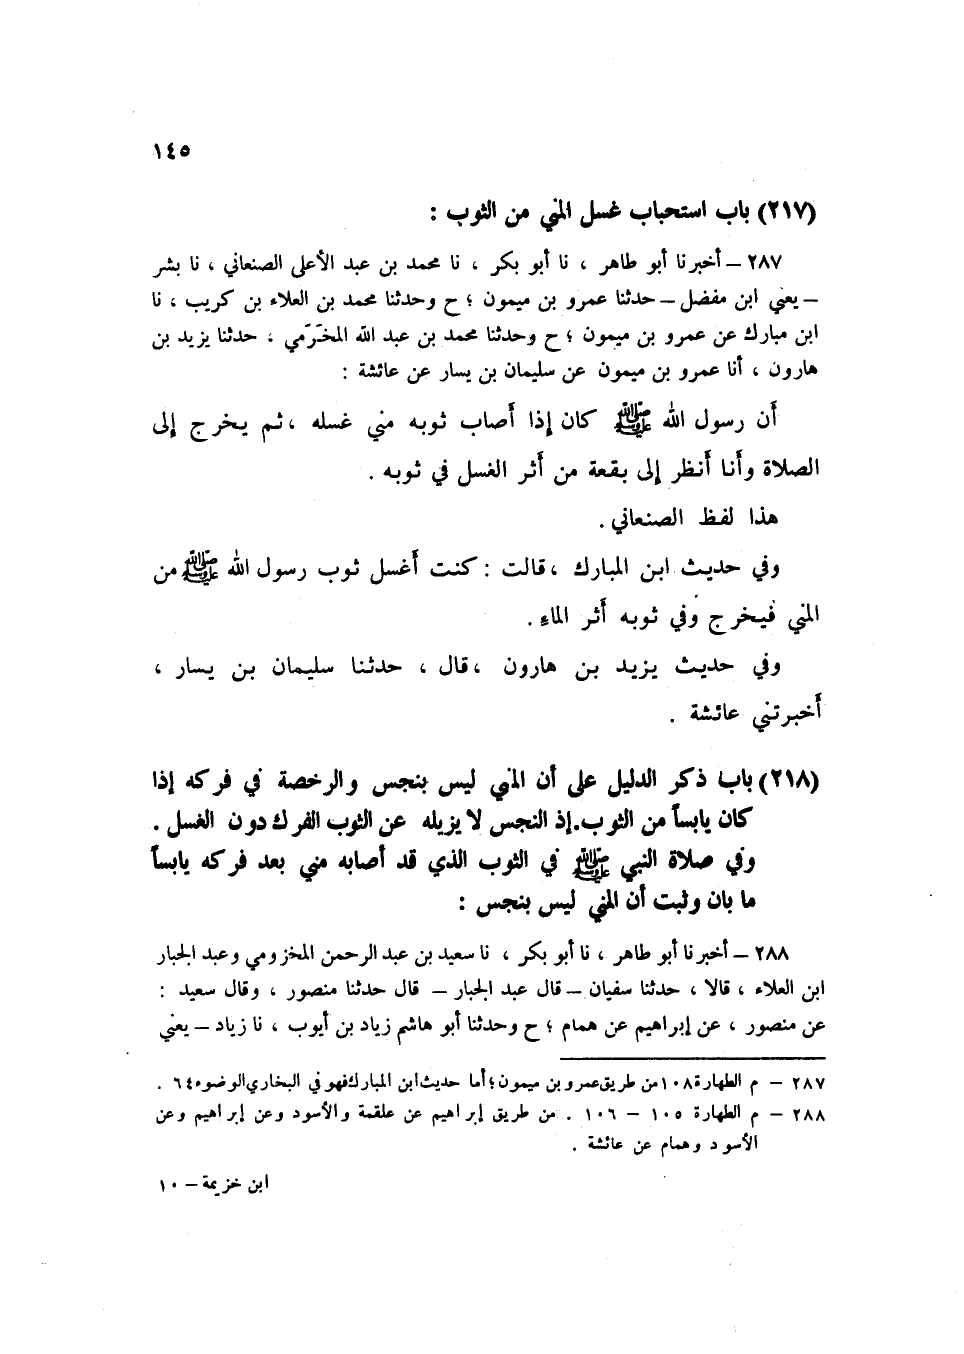 ١٤٥
(٢١٧) باب استحباب غسل المني من الثوب :
٢٨٧ – أخبرنا أبو طاهر ، نا أبو بكر ، نا محمد بن عبد الأعلى الصنعاني ، نا بشر
– يعني ابن مفضل – حدثنا عمرو بن ميمون ؛ ح وحدثنا محمد بن العلاء بن كريب ، نا
ابن مبارك عن عمرو بن ميمون ؛ ح وحدثنا محمد بن عبد الله المخَرّمي ، حدثنا يزيد بن
هارون ، أنا عمرو بن ميمون عن سليمان بن يسار عن عائشة :
أن رسول الله ﷺ كان إذا أصاب ثوبه مني غسله ، ثم يخرج إلى
الصلاة وأنا أنظر إلى بقعة من أثر الغسل في ثوبه .
هذا لفظ الصنعاني .
وفي حديث ابن المبارك ، قالت : كنت أغسل ثوب رسول الله ﷺ من
المني فيخرج وفي ثوبه أثر الماء .
وفي حديث يزيد بن هارون ، قال ، حدثنا سليمان بن يسار ،
أخبرتني عائشة .
(٢١٨) باب ذكر الدليل على أن المني ليس بنجس والرخصة في فركه إذا
كان يابساً من الثوب . إذ النجس لا يزيله عن الثوب الفرك دون الغسل .
وفي صلاة النبي ﷺ في الثوب الذي قد أصابه مني بعد فركه يابساً
ما بان وثبت أن المني ليس بنجس :
٢٨٨ – أخبرنا أبو طاهر ، نا أبو بكر ، نا سعيد بن عبد الرحمن المخزومي وعبد الجبار
ابن العلاء ، قالا ، حدثنا سفيان – قال عبد الجبار – قال حدثنا منصور ، وقال سعيد :
عن منصور ، عن إبراهيم عن همام ؛ ح وحدثنا أبو هاشم زياد بن أيوب ، نا زياد – يعني
٢٨٧ – م الطهارة ١٠٨ من طريق عمرو بن ميمون ؛ أما حديث ابن المبارك فهو في البخاري الوضوء ٦٤ .
٢٨٨ – م الطهارة ١٠٥ – ١٠٦ . من طريق إبراهيم عن علقمة والأسود وعن إبراهيم وعن
الأسود وهمام عن عائشة .
ابن خزيمة – ١٠